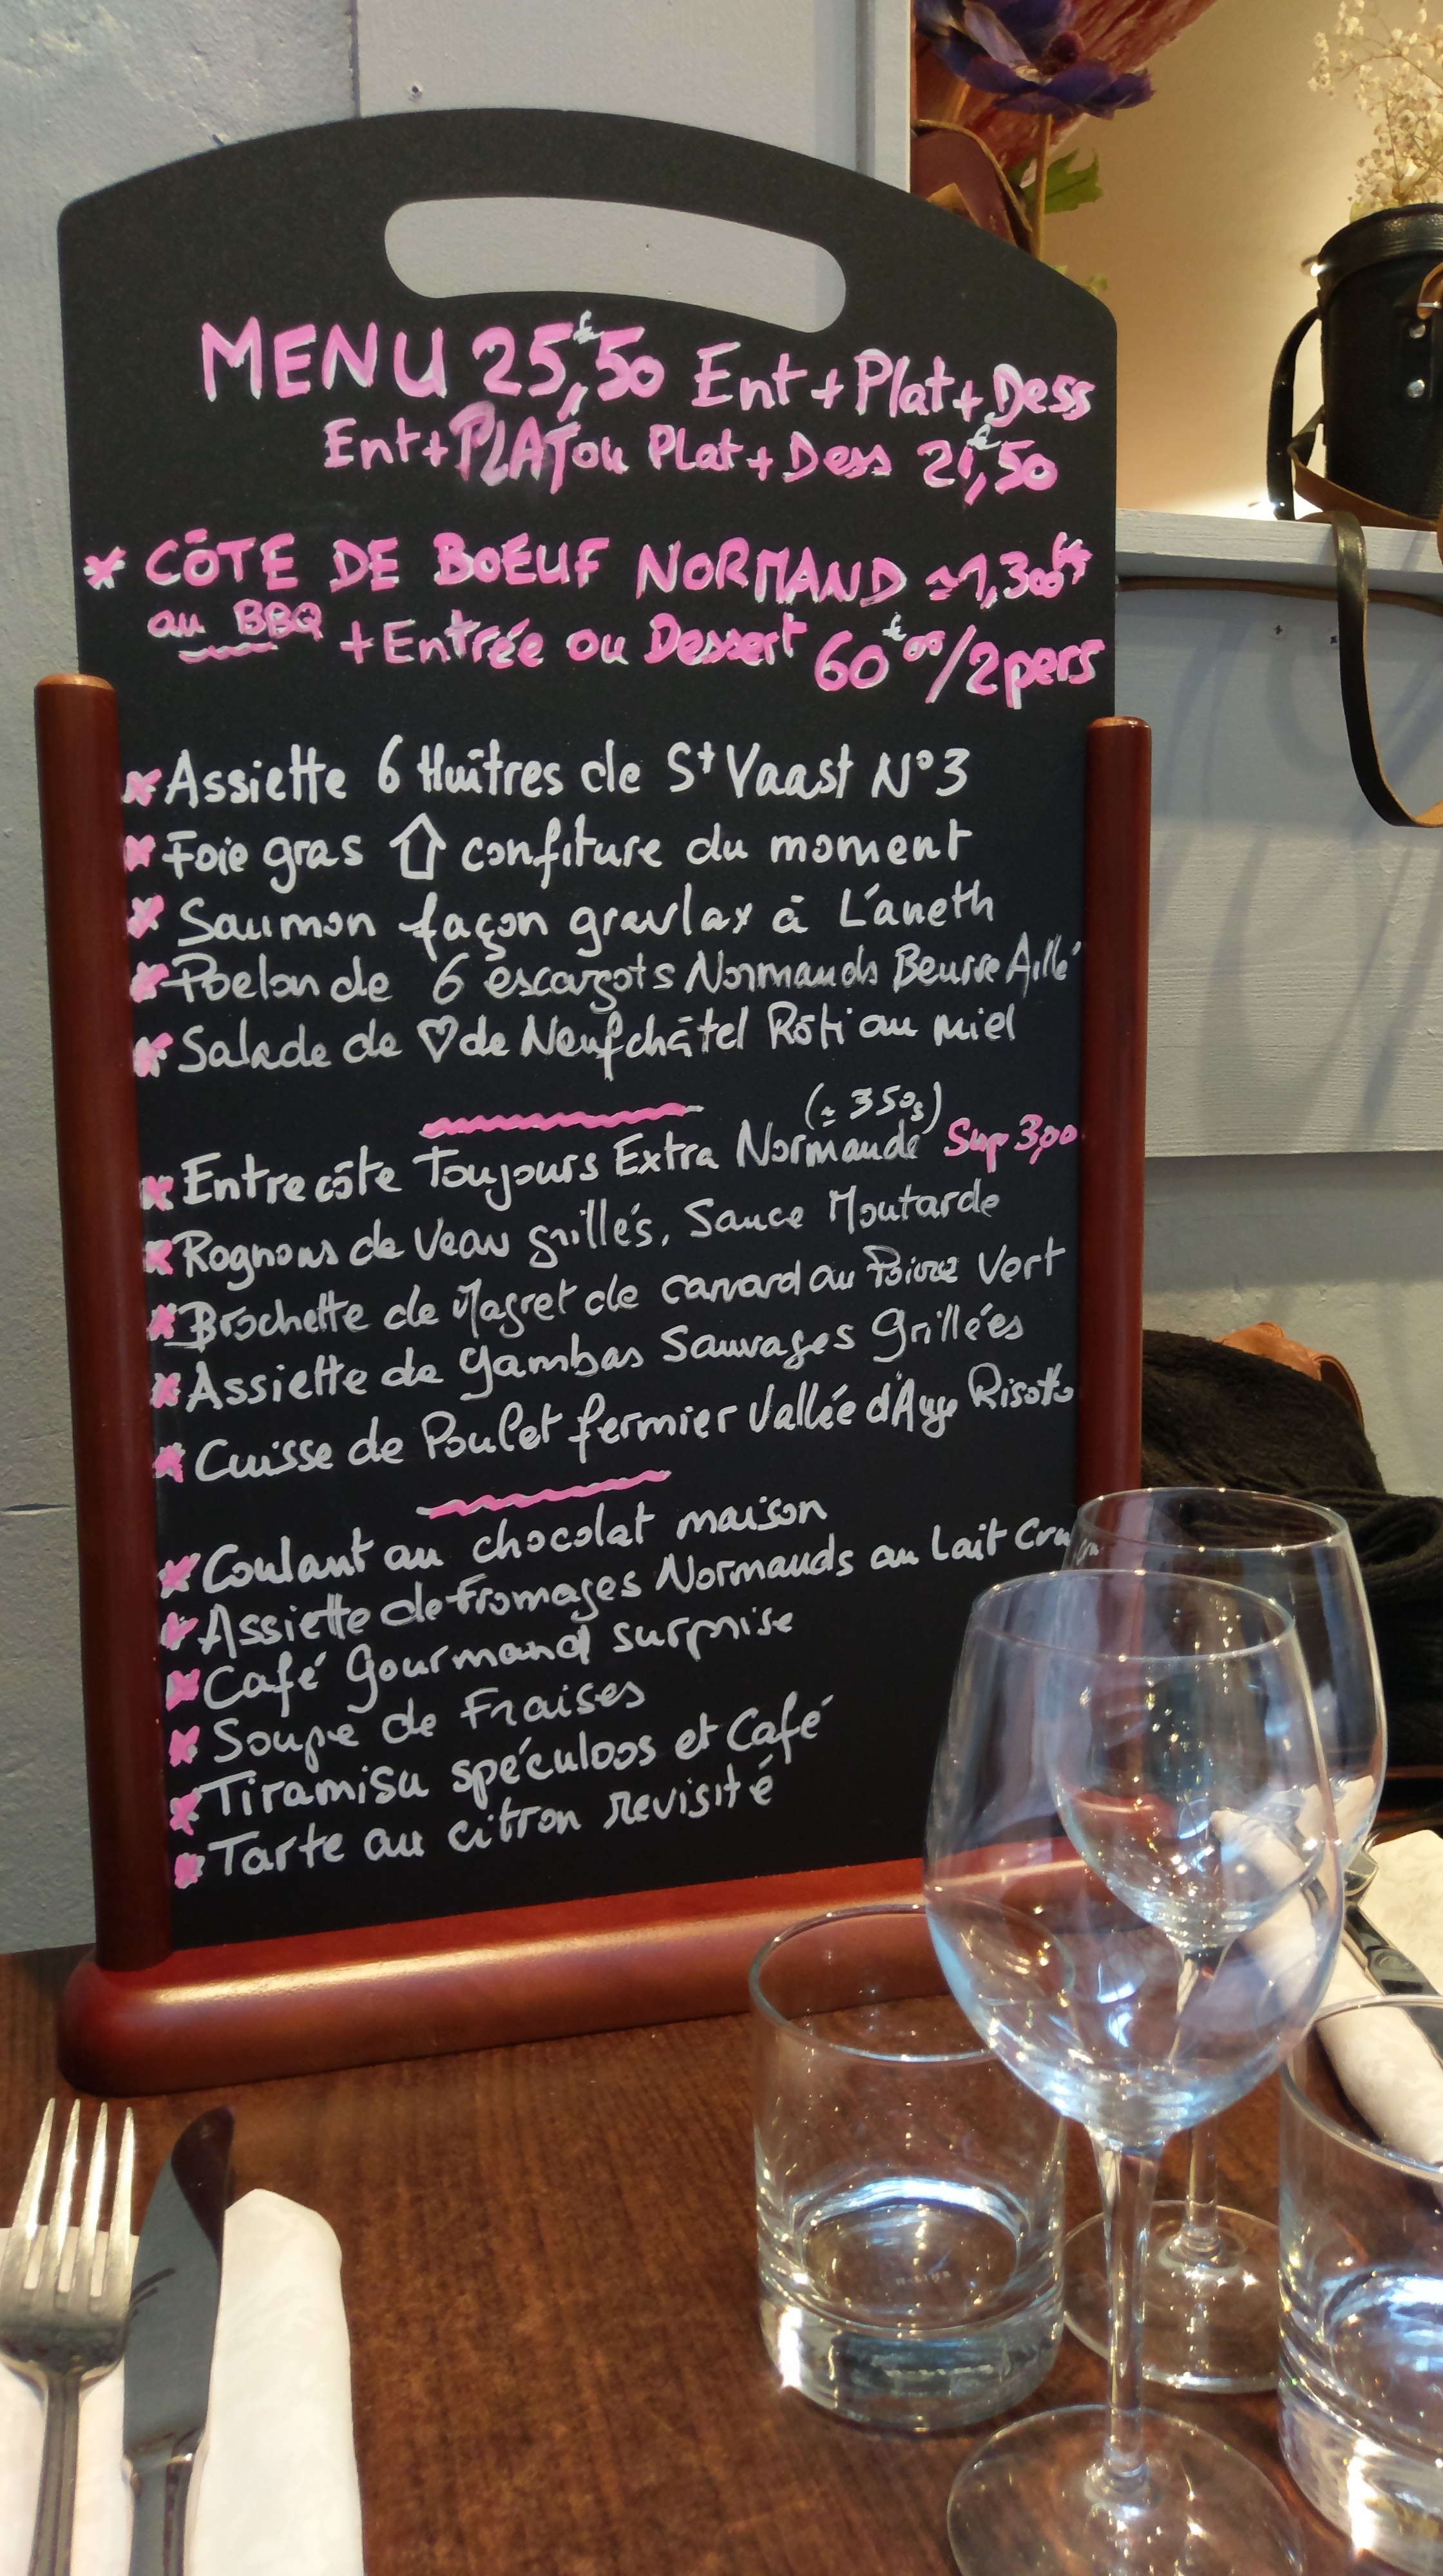 MENU 25,€50 Ent + Plat + Dess
Ent + PLAT ou Plat + Dess 21,€50
* CÔTE DE BOEUF NORMAND ≃ 1,300kg
au BBQ + Entrée ou Dessert 60€00/2pers
* Assiette 6 Huîtres de St Vaast N°3
* Foie gras ⇧ confiture du moment
* Saumon façon gravlax à L'aneth
* Poelon de 6 escargots Normands Beurre Aillé
* Salade de ♡ de Neufchâtel Rôti au miel
(≃ 350g)
* Entrecôte Toujours Extra Normande Sup 3,00
* Rognons de Veau grillés, Sauce Moutarde
* Brochette de Magret de canard au Poivre Vert
* Assiette de gambas Sauvages Grillées
* Cuisse de Poulet fermier Vallée d'Auge Risotto
* Coulant au chocolat maison
* Assiette de Fromages Normands au Lait Cru
* Café Gourmand surprise
* Soupe de Fraises
* Tiramisu spéculoos et Café
* Tarte au citron revisité